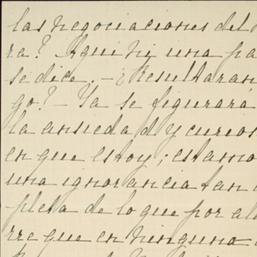 las negociaciones del
ra? Aqui ni una pa
se dice. - ¿Resultaran
go? - Ya se figurará
la ansiedad y curios
en que estoy; estamo
una ignorancia tan
pleta de lo que por al
rre que en ninguna